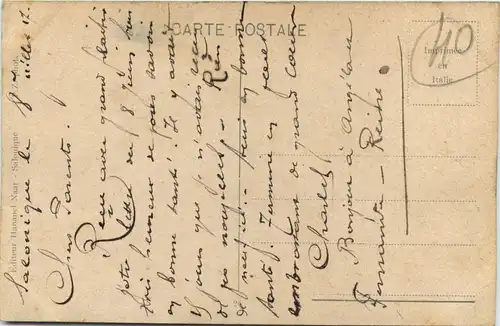 CARTE POSTALE
Imprimée
en
Italie
40
Editeur Hananel Naar - Salonique
Salonique le 8 juillet 17.
Chers Parents.
Reçu avec grand plaisir
votre lettre du 8 Juin suis
très heureux de vous savoir
en bonne santé. Il y avait
jours que je n'avais reçu
de vos nouvelles. Rien
de neuf ici. suis en bonne
santé. Termine en vous
embrassant de grand coeur
Charles
Bonjour à
Fernande